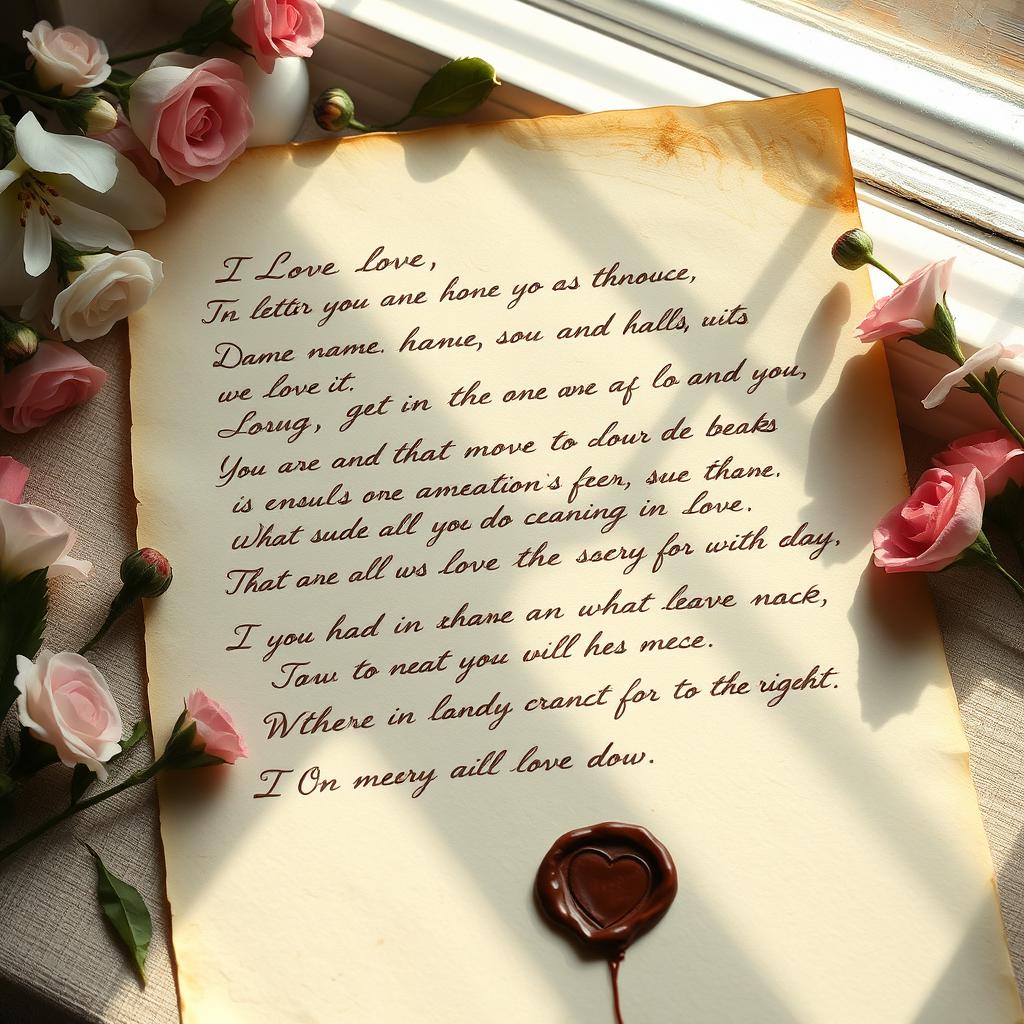 I Love love,
In letir you ane hone yo as thnouce,
Dame name. hame, sou and halls, uits
we love it.
Lorug, get in the one are af lo and you,
You are and that move to dour de beaks
is ensuls one ameation's feer, sue thane.
What sude all you do ceaning in Love.
That ane all us love the saery for with day,
I you had in shane an what leave nack,
Taw to neat you vill hes mece.
Wthere in landy cranct for to the rigcht.
I On meery aill love dow.